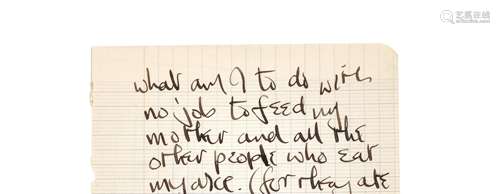 艺典在线
yidianchina.com
what am I to do with
no job to feed my
mother and all the
other people who eat
my rice. (for they ate